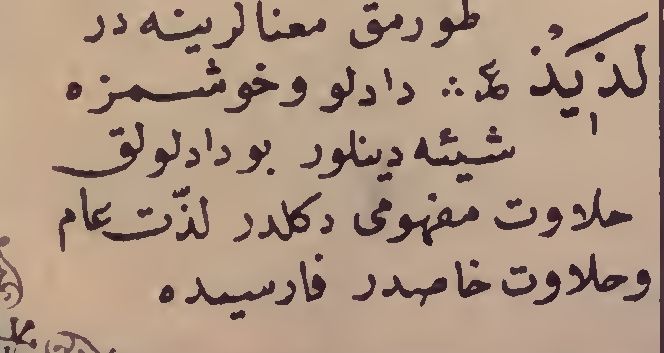 طورمق معنالرینه در
لذیذ ع دادلو و خوشمزه
شیئه دینلور بو دادلولق
حلاوت مفهومی دکلدر لذّت عام
وحلاوت خاصدر فارسیده